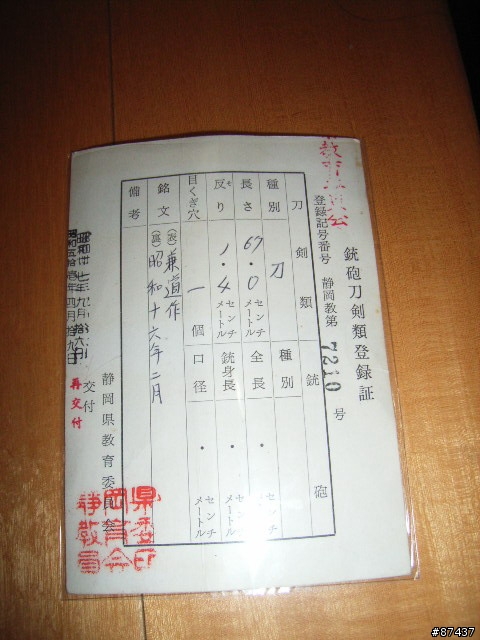 銃砲刀剣類登録証
登録記号番号 静岡教第 7210 号
刀剣類
銃砲
種別 刀
種別
長さ 67.0 センチメートル
全長 ・ センチメートル
反り 1.4 センチメートル
銃身長 ・ センチメートル
目くぎ穴 一個
口径 ・ センチメートル
銘文 (表) 兼道作
(裏) 昭和十六年二月
備考
昭和五拾四年四月拾九日
交付
再交付
静岡県教育委員会
#87437